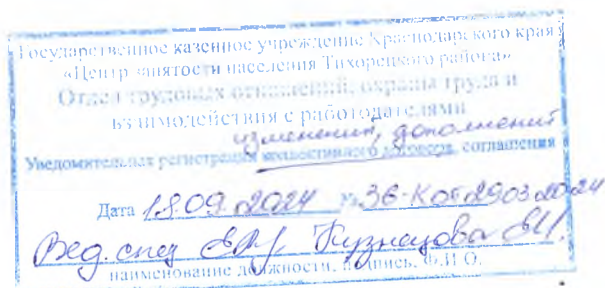 Государственное казенное учреждение Краснодарского края
«Центр занятости населения Тихорецкого района»
Отдел трудовых отношений, охраны труда и
взаимодействия с работодателями
изменений, дополнений
Уведомительная регистрация коллективного договора, соглашения
Дата 18.09.2024 № 36-К от 29.03.2024
Вед. спец Кузнецова Е.И.
наименование должности, подпись, Ф.И.О.